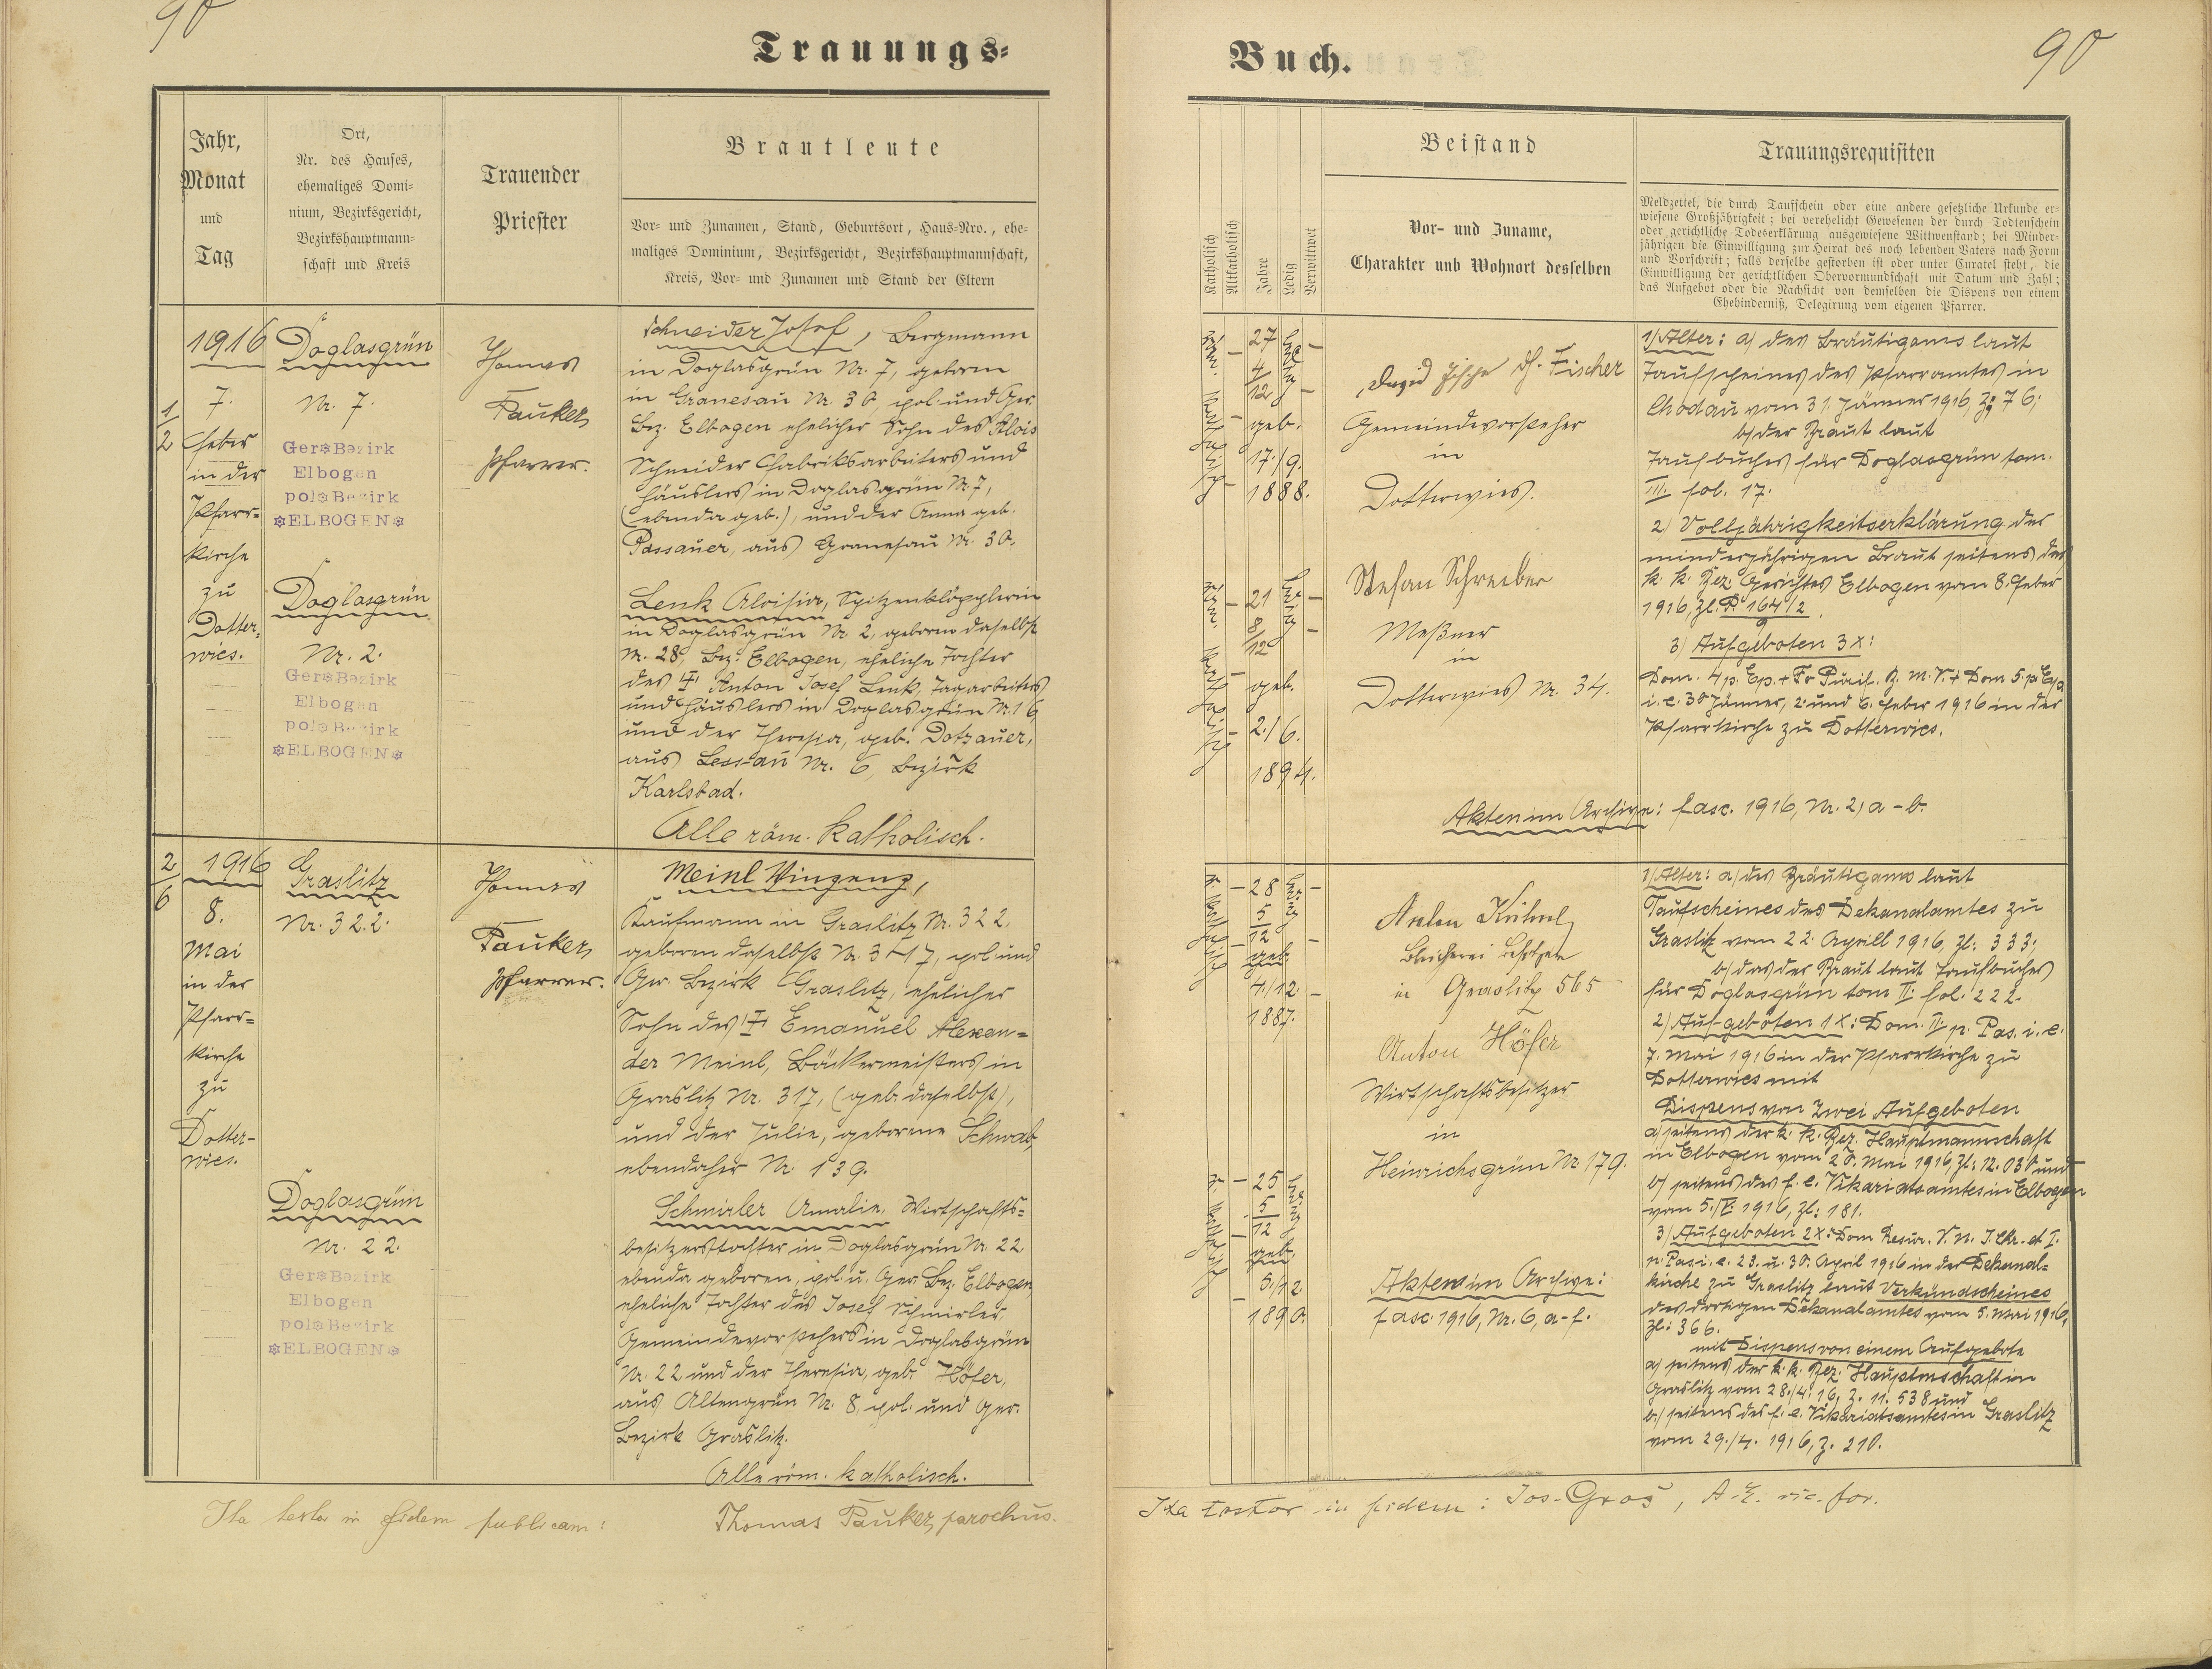 90
Trauungs-
Jahr,
Monat
und
Tag
Ort,
Nr. des Hauses,
ehemaliges Domi-
nium, Bezirksgericht,
Bezirkshauptmann-
schaft und Kreis
Trauender
Priester
Brautleute
Vor- und Zunamen, Stand, Geburtsort, Haus-Nro., ehe-
maliges Dominium, Bezirksgericht, Bezirkshauptmannschaft,
Kreis, Vor- und Zunamen und Stand der Eltern
1/2
1916
7.
Feber
in der
Pfarr-
kirche
zu
Dotter-
wies.
Doglasgrün
Nr. 7.
Ger. Bezirk
Elbogen
pol. Bezirk
ELBOGEN
Doglasgrün
Nr. 2.
Ger. Bezirk
Elbogen
pol. Bezirk
ELBOGEN
Thomas
Pauker,
Pfarrer.
Schneider Josef, Bergmann
in Doglasgrün Nr. 7, geboren
in Granesau Nr. 30, pol. und Ger.
Bez. Elbogen ehelicher Sohn des Alois
Schneider Fabriksarbeiters und
Häuslers in Doglasgrün Nr. 7,
(ebenda geb.), und der Anna geb.
Passauer, aus Granesau Nr. 30.
Lenk Aloisia, Spitzenklöpplerin
in Doglasgrün Nr. 2, geboren daselbst
Nr. 28, Bez. Elbogen, eheliche Tochter
des † Anton Josef Lenk, Tagarbeiters
und Häuslers in Doglasgrün Nr. 16,
und der Theresia, geb. Dotzauer,
aus Lessau Nr. 6, Bezirk
Karlsbad.
Alle röm. katholisch.
2/6
1916
8.
Mai
in der
Pfarr-
kirche
zu
Dotter-
wies.
Graslitz
Nr. 322.
Doglasgrün
Nr. 22.
Ger. Bezirk
Elbogen
pol. Bezirk
ELBOGEN
Thomas
Pauker,
Pfarrer.
Meinl Vinzenz,
Kaufmann in Graslitz Nr. 322,
geboren daselbst Nr. 317, pol. und
Ger. Bezirk Graslitz, ehelicher
Sohn des † Emanuel Alexan-
der Meinl, Bäckermeisters in
Graslitz Nr. 317, (geb. daselbst),
und der Julie, geborene Schwab,
ebendaher Nr. 139.
Schmirler Amalie, Wirtschafts-
besitzerstochter in Doglasgrün Nr. 22
ebenda geboren, pol. u. Ger. Bez. Elbogen,
eheliche Tochter des Josef Schmirler
Gemeindevorstehers in Doglasgrün
Nr. 22 und der Theresia, geb. Höfer,
aus Altengrün Nr. 8, pol. und Ger.
Bezirk Graslitz.
Alle röm. katholisch.
Ita testor in fidem publicam:
Thomas Pauker, parochus.
Buch.
90
Katholisch
Altkatholisch
Jahre
Ledig
Verwittwet
Beistand
Vor- und Zuname,
Charakter und Wohnort desselben
Trauungsrequisiten
Meldzettel, die durch Taufschein oder eine andere gesetzliche Urkunde er-
wiesene Großjährigkeit; bei verehelicht Gewesenen der durch Todtenschein
oder gerichtliche Todeserklärung ausgewiesene Wittwenstand; bei Minder-
jährigen die Einwilligung zur Heirat des noch lebenden Vaters nach Form
und Vorschrift; falls derselbe gestorben ist oder unter Curatel steht, die
Einwilligung der gerichtlichen Obervormundschaft mit Datum und Zahl;
das Aufgebot oder die Nachsicht von demselben die Dispens von einem
Ehehinderniß, Delegirung vom eigenen Pfarrer.
röm. katholisch
27
4/12
geb.
17./9.
1888.
ledig
röm. katholisch
21
8/12
geb.
2./6.
1894.
ledig
David Fischer
Gemeindevorsteher
in
Dotterwies.
Stefan Schreiber
Meßner
in
Dotterwies Nr. 34.
1) Alter: a) des Bräutigams laut
Taufscheines des Pfarramtes in
Chodau vom 31. Jänner 1916, Z: 76;
b) der Braut laut
Taufbuches für Doglasgrün tom.
III. fol. 17.
2) Volljährigkeitserklärung der
minderjährigen Braut seitens des
k. k. Bez. Gerichtes Elbogen vom 8. Feber
1916, Zl.
3) Aufgeboten 3x:
Dom. 4 p. Ep. + Fr Purif. B. M. V. + Dom 5. p. Ep.
i. e. 30 Jänner, 2. und 6. Feber 1916 in der
Pfarrkirche zu Dotterwies.
Akten im Archive: fasc. 1916, Nr. 2, a-b.
r. katholisch
28
5/12
geb.
4/12
1887.
ledig
r. katholisch
25
5/12
geb.
5./12
1890.
ledig
Anton
in Graslitz 565
Anton Höfer
Wirtschaftsbesitzer
in
Heinrichsgrün Nr. 179.
Akten im Archive:
fasc. 1916, Nr. 6, a-f.
1) Alter: a) des Bräutigams laut
Taufscheines des Dekanalamtes zu
Graslitz vom 22. Aprill 1916, Zl: 333;
b) das der Braut laut Taufbuches
für Doglasgrün tom II. fol. 222.
2) Aufgeboten 1x: Dom. II. p. Pas. i. e.
7. Mai 1916 in der Pfarrkirche zu
Dotterwies mit
Dispens von zwei Aufgeboten
a) seitens der k. k. Bez. Hauptmannschaft
in Elbogen vom Mai 1916, Zl: 12.030 und
b) seitens des f. e. Vikariatsamtes in Elbogen
vom 5./V. 1916, Zl: 181.
3) Aufgeboten 2x: Dom Resur. D. N. J. Chr. et I.
p. Pas. i. e. 23. u. 30. April 1916 in der Dekanal-
kirche zu Graslitz laut Verkündscheines
des dortigen Dekanalamtes vom 5. Mai 1916,
Zl: 366.
mit Dispens von einem Aufgebote
a) seitens der k. k. Bez. Hauptmschaft in
Graslitz vom 28./4. 16, Z. 11.538 und
b) seitens des f. e. Vikariatsamtes in Graslitz
vom 29./4. 1916, Z. 210.
Ita testor in fidem: Jos. Groš, A. E. vic. for.